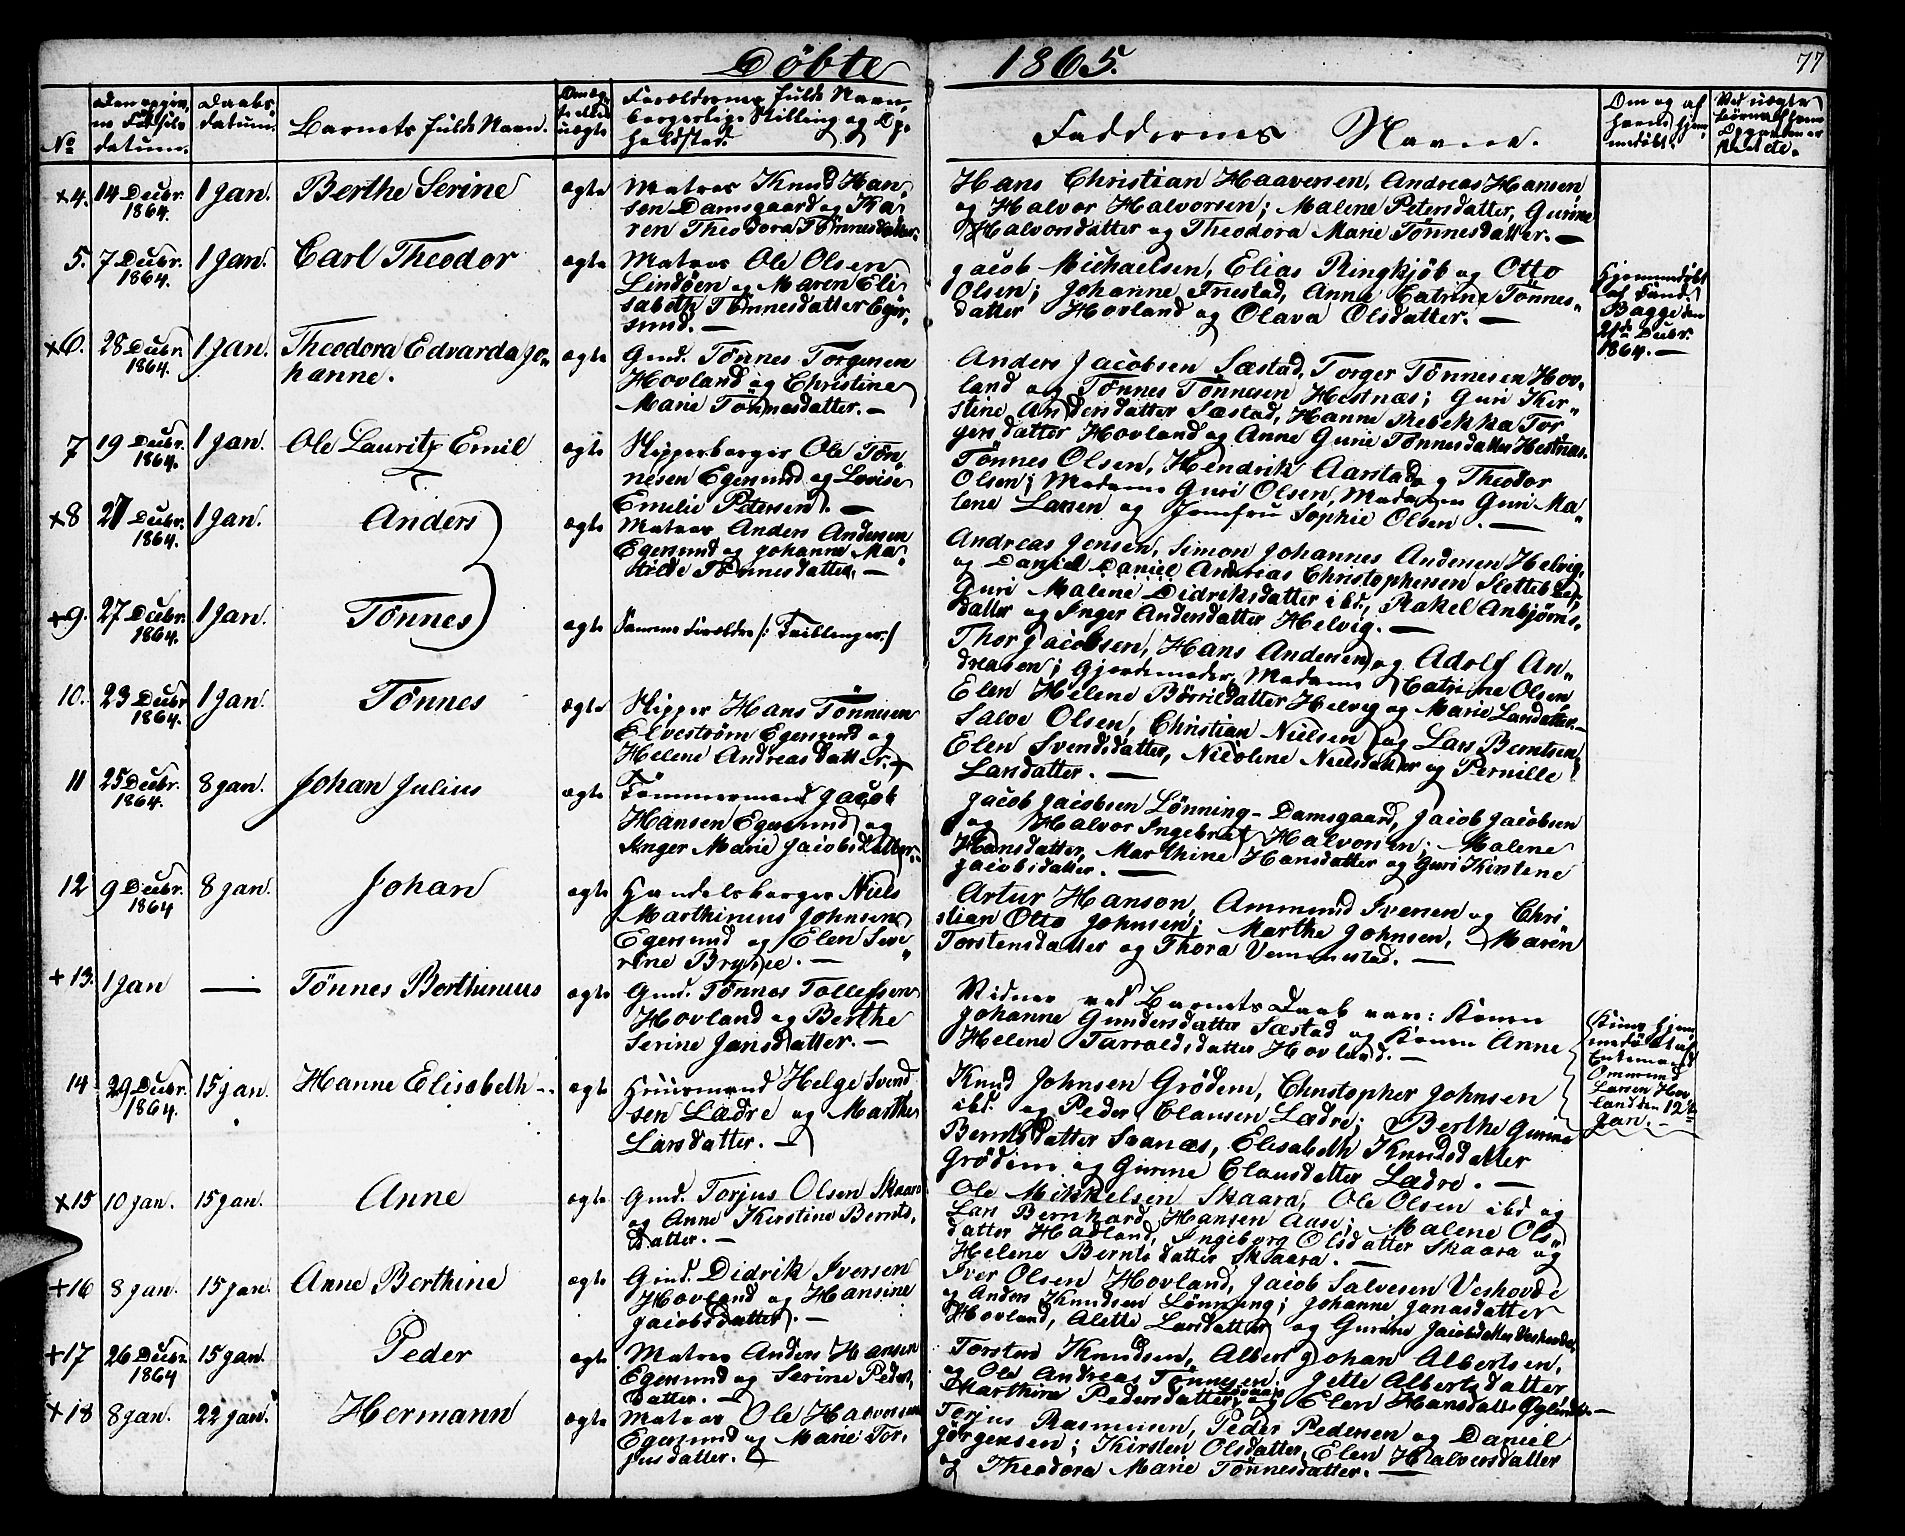 Döbte 1865.
77
No
Den opgiv-
ne Födsels
datum.
Daabs
datum.
Barnets fulde Navn.
Om æg-
te eller
uægte
Forældrenes fulde Navn,
borgerlige Stilling og Op-
holdsted.
Faddernes Navne.
Om og af
hvem hjem-
medöbt.
Ved uægte
Börn
×4. 14 Decbr. 1864. 1 Jan. Berthe Serine ægte
Matros Knud Han-
sen Damsgaard og Ka-
ren Theodora Tönnesdatter.
Hans Christian Haaversen, Andreas Hansen
og Halvor Halvorsen; Malene Petersdatter, Gurine
Halvorsdatter og Theodora Marie Tönnesdatter. —
5. 7 Decbr. 1864. 1 Jan. Carl Theodor ægte
Matros Ole Olsen
Lindöen og Maren Eli-
sabeth Tönnesdatter Eger-
sund. —
Jacob Michaelsen, Elias Ringkjöb og Otto
Olsen; Johanne Friestad, Anne Catrine Tönnes-
datter Hovland og Olava Olsdatter. —
Hjemmedöbt
af
Bagge den
21de Decbr.
1864. —
×6. 28 Decbr. 1864. 1 Jan. Theodora Edvarda Jo-
hanne. ægte
Gmd. Tönnes Torgersen
Hovland og Christine
Marie Tönnesdatter. —
Anders Jacobsen Sæstad, Torger Tönnesen Hov-
land og Tönnes Tönnesen Hestnæs; Guri Ker-
stine Andersdatter Sæstad, Hanne Rebekka Tor
gersdatter Hovland og Anne Gurie Tönnesdatter Hestnæs.
7 19 Decbr. 1864. 1 Jan. Ole Lauritz Emil ægte
Skipperborger Ole Tön-
nesen Egersund og Lovise
Emelie Petersen. —
Tönnes Olsen, Hendrik Aarstad og Theodor
Olsen; Madame Guri Olsen, Madamen Guri Ma-
lene Larsen og Jomfru Sophie Olsen. —
×8 27 Decbr. 1864. 1 Jan. Anders ægte
Matros Anders Andersen
Egersund og Johanne Ma-
thilde Tönnesdatter. —
Andreas Jensen, Simon Johannes Andersen Helvig,
og Daniel Daniel Andreas Christophersen Slettebö;
Guri Malene Didriksdatter ibd., Rakel Anbjörns-
datter og Inger Andersdatter Helvig. —
×9. 27 Decbr. 1864. 1 Jan. Tönnes ægte
Samme Forældre /: Tvillinger:/
Thor Jacobsen, Hans Andersen og Adolf An-
dreasen; Gjordemoder Madame Catrine Olsen
Elen Helene Börrildatter Helvig og Marie Larsdatter. —
10. 23 Decbr. 1864. 1 Jan. Tönnes ægte
Skipper Hans Tönnesen
Elveström Egersund og
Helene Andreasdatter. —
Salve Olsen, Christian Nielsen og Lars Berntsen;
Elen Svendsdatter, Nicoline Nielsdatter og Pernille
Larsdatter. —
11 25 Decbr. 1864. 8 Jan. Johan Julius ægte
Tömmermand Jacob
Hansen Egersund og
Inger Marie Jacobsdatter. —
Jacob Jacobsen Lönning-Damsgaard, Jacob Jacobsen
og Halvor Ingebret Halvorsen; Malene
Hansdatter, Marthine Hansdatter og Guri Kirstene
Jacobsdatter. —
12 9 Decbr. 1864 8 Jan. Johan ægte
Handelsborger Niels
Marthinius Johnsen
Egersund og Elen Seve-
rine Brynie. —
Artur Hanson, Ammund Iversen og Chri-
stian Otto Johnsen; Marthe Johnsen, Maren
Torstensdatter og Thora Vemmestad. —
+13. 1 Jan — Tönnes Berthinius ægte
Gmd. Tönnes Tollefsen
Hovland og Berthe
Serine Jansdatter. —
Vidner ved Barnets Daab var: Konen
Johanne Gundersdatter Sæstad og Konen Anne
Helene Tarraldsdatter Hovland. —
Kun hjem
medöbt af
Enkemand
Ommund
Larsen Hov-
land den 12te
Jan. —
14 29 Decbr. 1864. 15 Jan. Hanne Elisabeth ægte
Huusmand Helge Svend
sen Lædre og Marthe
Larsdatter. —
Knud Johnsen Grödem, Christopher Johnsen
ibd. og Peder Clausen Lædre; Berthe Gurine
Berntsdatter Svanæs, Elisabeth Knudsdatter
Grödem og Gurine Clausdatter Lædre. —
×15 10 Jan. 15 Jan. Anne ægte
Gmd. Torjus Olsen Skaara
og Anne Kirstine Bernts-
datter. —
Ole Mikkelsen Skaara, Ole Olsen ibd og
Lars Bernhard Hansen Aase; Malene Ols-
datter Hadland, Ingeborg Olsdatter Skaara og
Helene Berntsdatter Skaara. —
+16 8 Jan. 15 Jan. Anne Berthine ægte
Gmd. Didrik Iversen
Hovland og Hansine
Jacobsdatter. —
Iver Olsen Hovland, Jacob Salvesen Veshovde
og Anders Knudsen Lönning; Johanne Janasdatter
Hovland, Alette Larsdatter og Gurine Jacobsdatter Veshovde.
+17 26 Decbr. 1864 15 Jan. Peder ægte
Matros Anders Hansen
Egersund og Serine Peders-
datter. —
Torsten Knudsen, Albert Johan Albertsen,
og Ole Andreas Tönnesen; Jette Albertsdatter
Marthine Pedersdatter og Elen Hansdatter —
+18 8 Jan. 22 Jan. Hermann ægte
Matros Ole Halvorsen
Egersund og Marie Tor-
jusdatter. —
Torjus Rasmusen, Peder Pedersen og Daniel
Jörgensen; Kirsten Olsdatter, Elen Halvorsdatter
og Theodora Marie Tönnesdatter. —